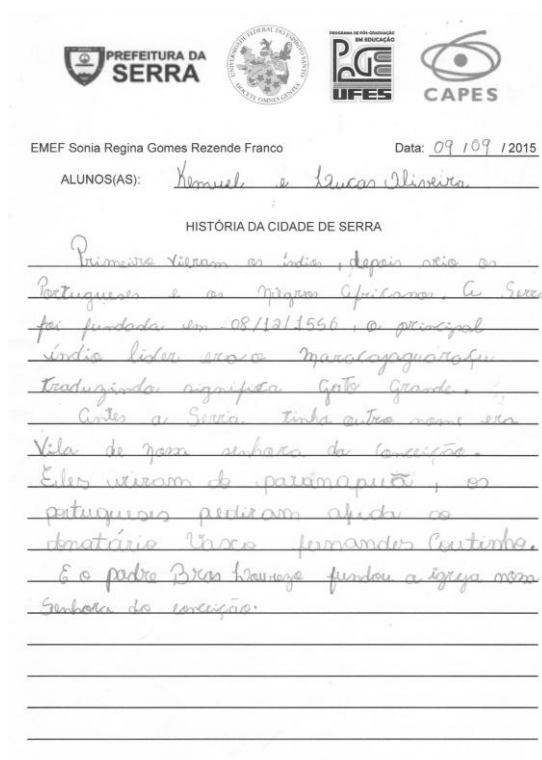 PREFEITURA DA
SERRA
UNIVERSIDADE FEDERAL DO ESPÍRITO SANTO
DOCETE OMNES GENTES
PROGRAMA DE PÓS-GRADUAÇÃO
EM EDUCAÇÃO
PPGE
UFES
CAPES
EMEF Sonia Regina Gomes Rezende Franco Data: 09 / 09 / 2015
ALUNOS(AS): Kemuel e Lucas Oliveira
HISTÓRIA DA CIDADE DE SERRA
Primeiro vieram os índios, depois veio os
Portugueses e os Negros Africanos. A Serra
foi fundada em 08/12/1556, o principal
índio líder era o
traduzindo significa Gato Grande.
Antes a Serra tinha outro nome era
Vila de nossa senhora da Conceição.
Eles vieram do paránapuã, os
portugueses pediram ajuda ao
donatário Vasco fernandes Coutinho.
E o padre Bras Lourenço fundou a igreja nossa
Senhora da conceição.